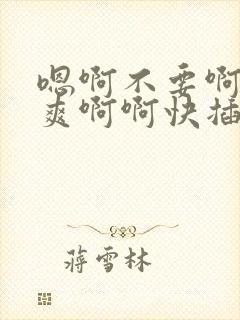 嗯啊不要啊
爽啊啊快插
蒋雪林